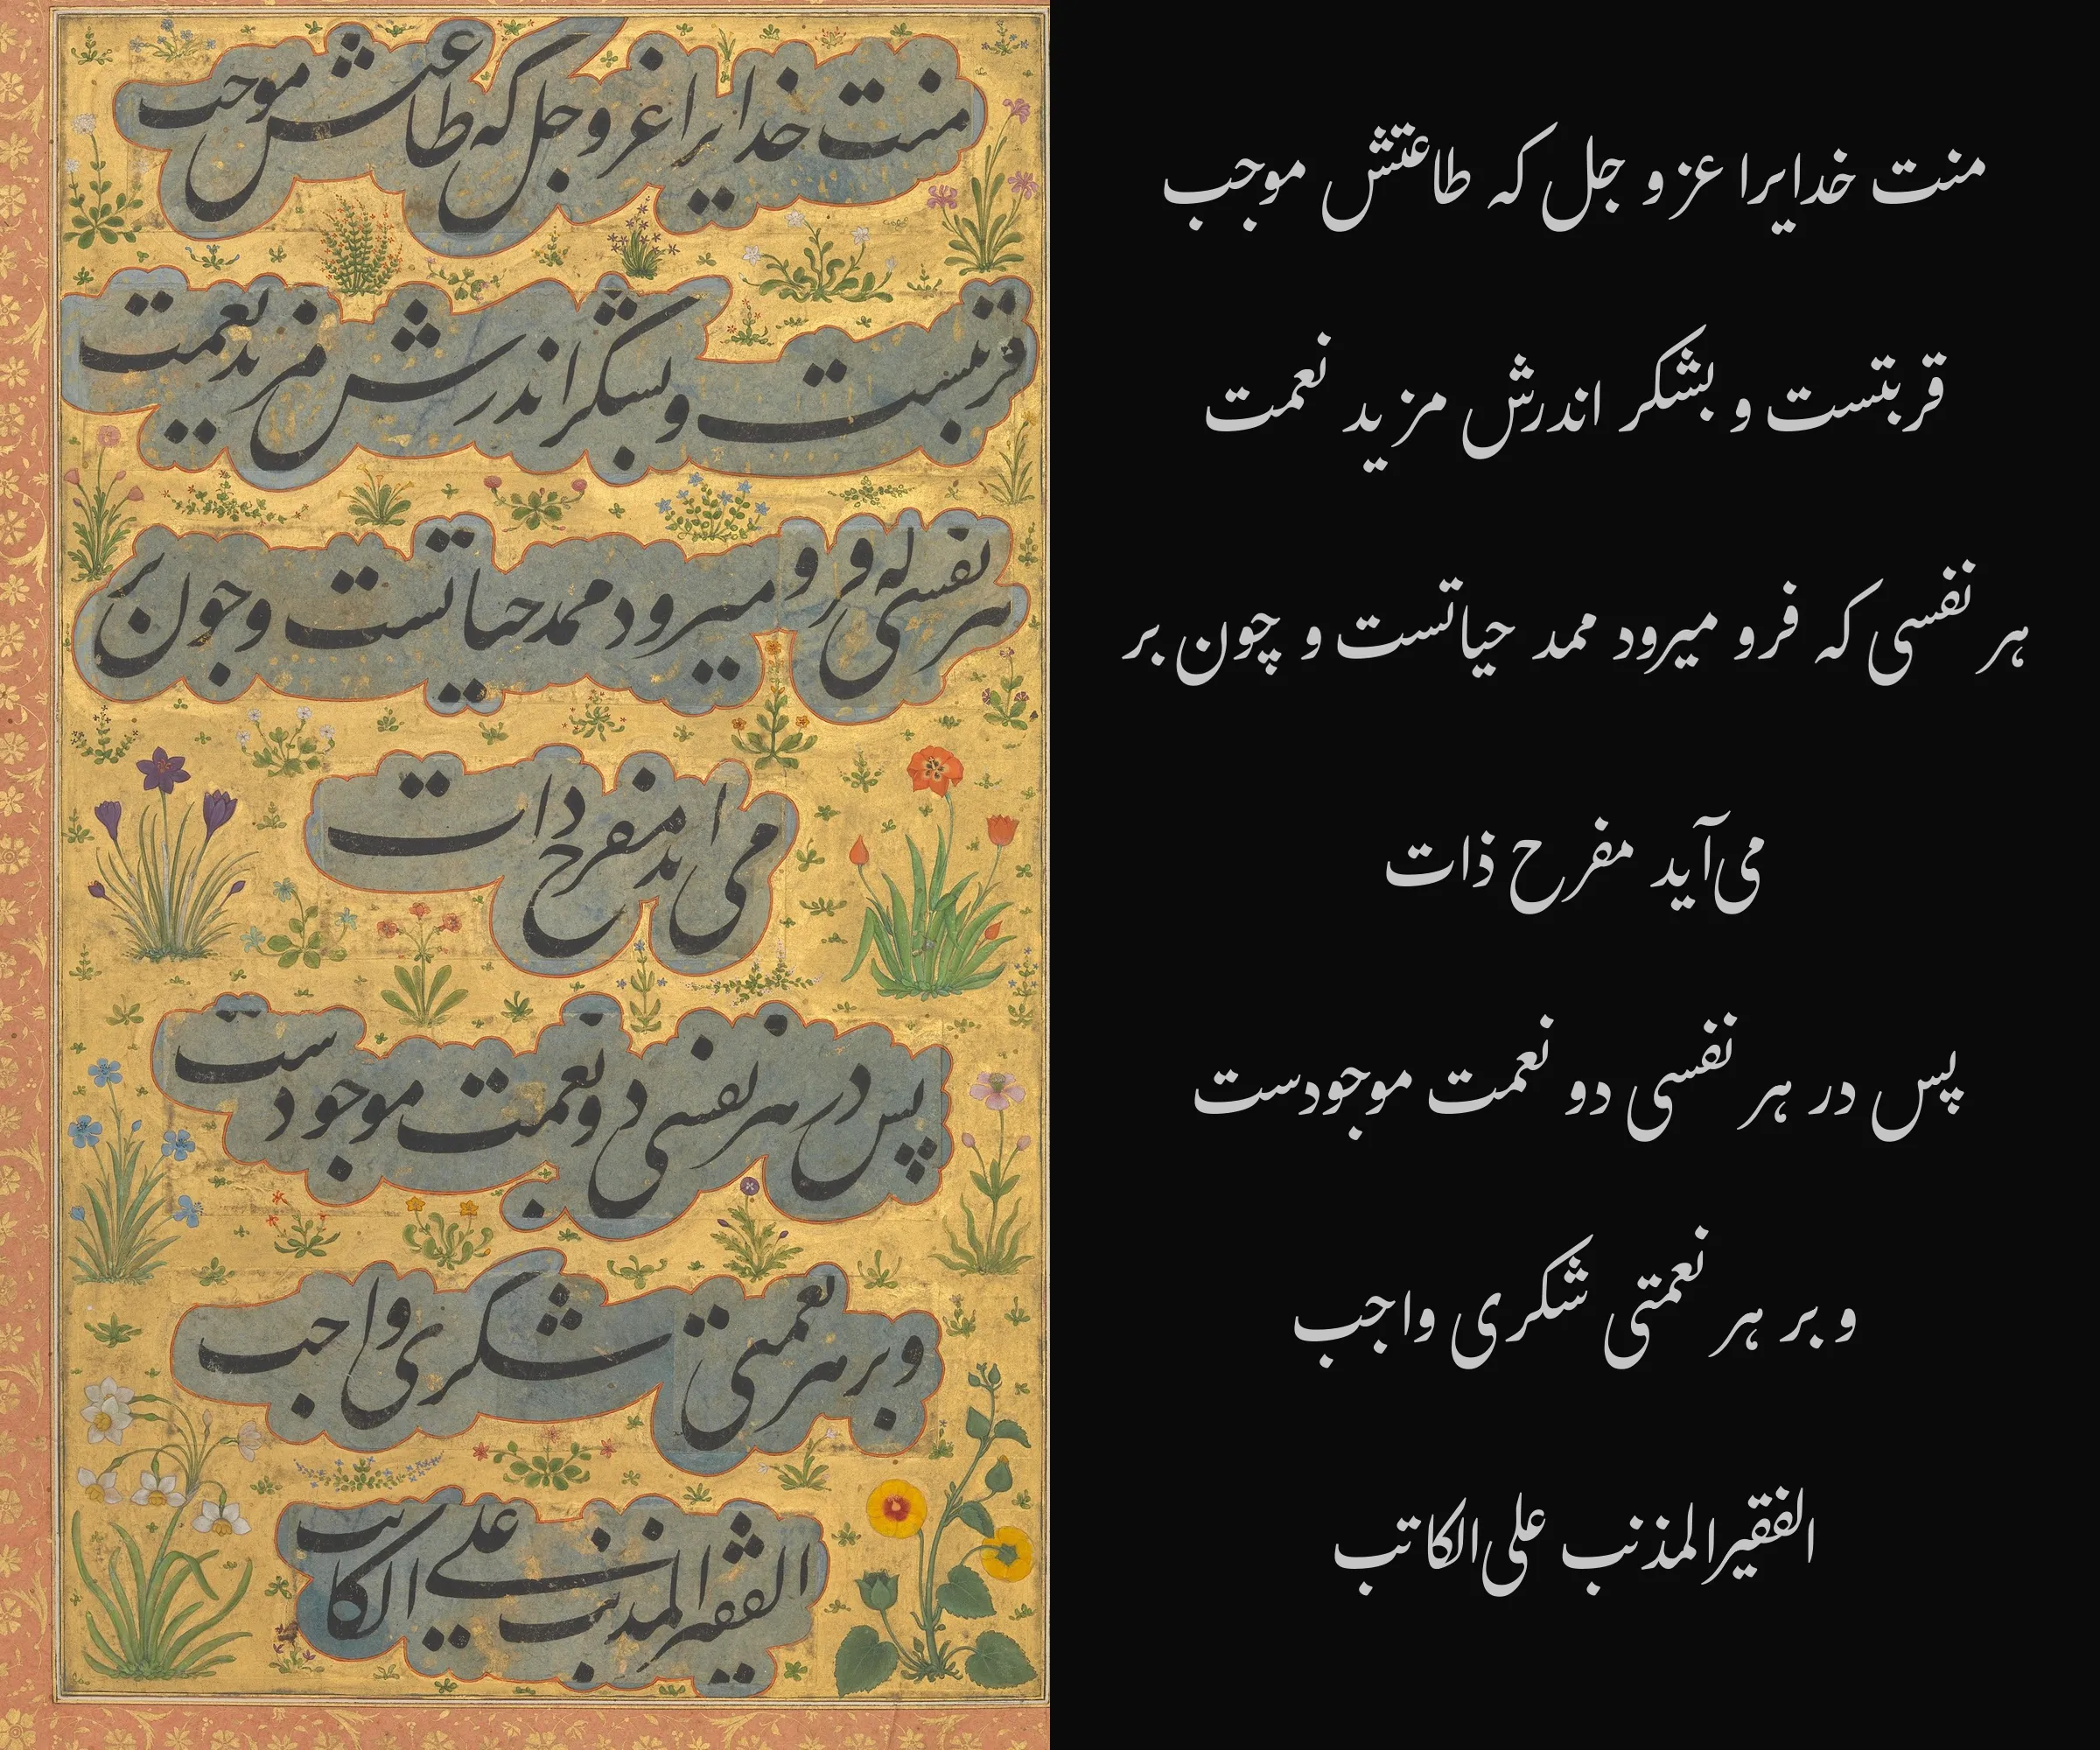 منت خدایرا عز و جل که طاعتش موجب
قربتست و بشکر اندرش مزید نعمت
هر نفسی که فرو میرود ممد حیاتست و چون بر
می اید مفرح ذات
پس در هر نفسی دو نعمت موجودست
و بر هر نعمتی شکری واجب
الفقیر المذنب علی الکاتب
منت خدایرا عز و جل که طاعتش موجب
قربتست و بشکر اندرش مزید نعمت
هر نفسی که فرو میرود ممد حیاتست و چون بر
می‌آید مفرح ذات
پس در هر نفسی دو نعمت موجودست
و بر هر نعمتی شکری واجب
الفقیر المذنب علی الکاتب